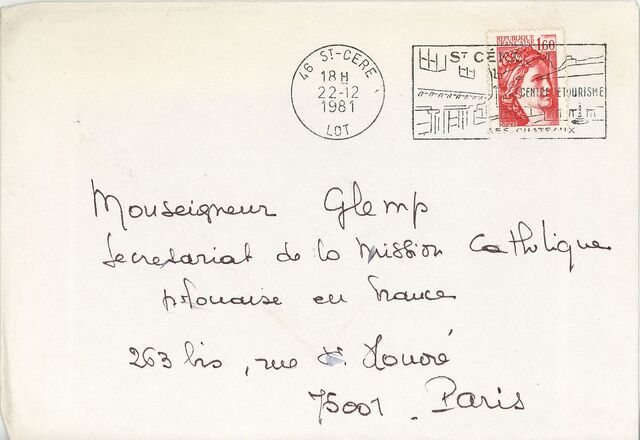 46 ST-CERE
18 H
22-12
1981
LOT
ST CÉRÉ
CENTRE DE TOURISME
SES CHATEAUX
REPUBLIQUE
FRANCAISE
1,60
POSTES
Monseigneur Glemp
Secretariat de la Mission Catholique
polonaise en France
263 bis, rue St. Honoré
75001 . Paris